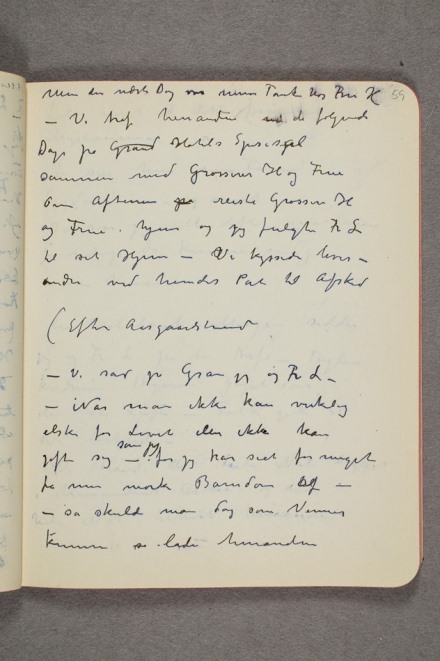 59
Men den næste Dag var mine Tanker hos Fru H
– Vi traf hinanden de følgende
Dage på Grand Hotels Spisesal
sammen med Grosserer H og Frue
Om Aftenen reiste Grosserer H
og Frue hjem og jeg fulgte Fr L
til sit Hjem – Vi kyssede hver-
andre ved hendes Port til Afsked
(Efter Aasgaardstrand
– Vi sad på Gran jeg og Fr L –
– Når man ikke kan virkelig
elske for Livet eller ikke kan
gifte sig – som jeg for jeg har seet for meget
fra min mørke Barndom af –
– så skulde man dog som Venner
kunne lade hinanden